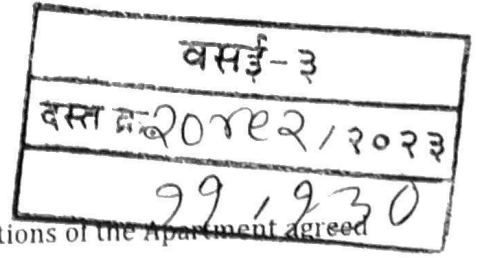 वसई-३
दस्त क्र. २०४९२ / २०२३
११ / १३०
tions of the Apartment agreed